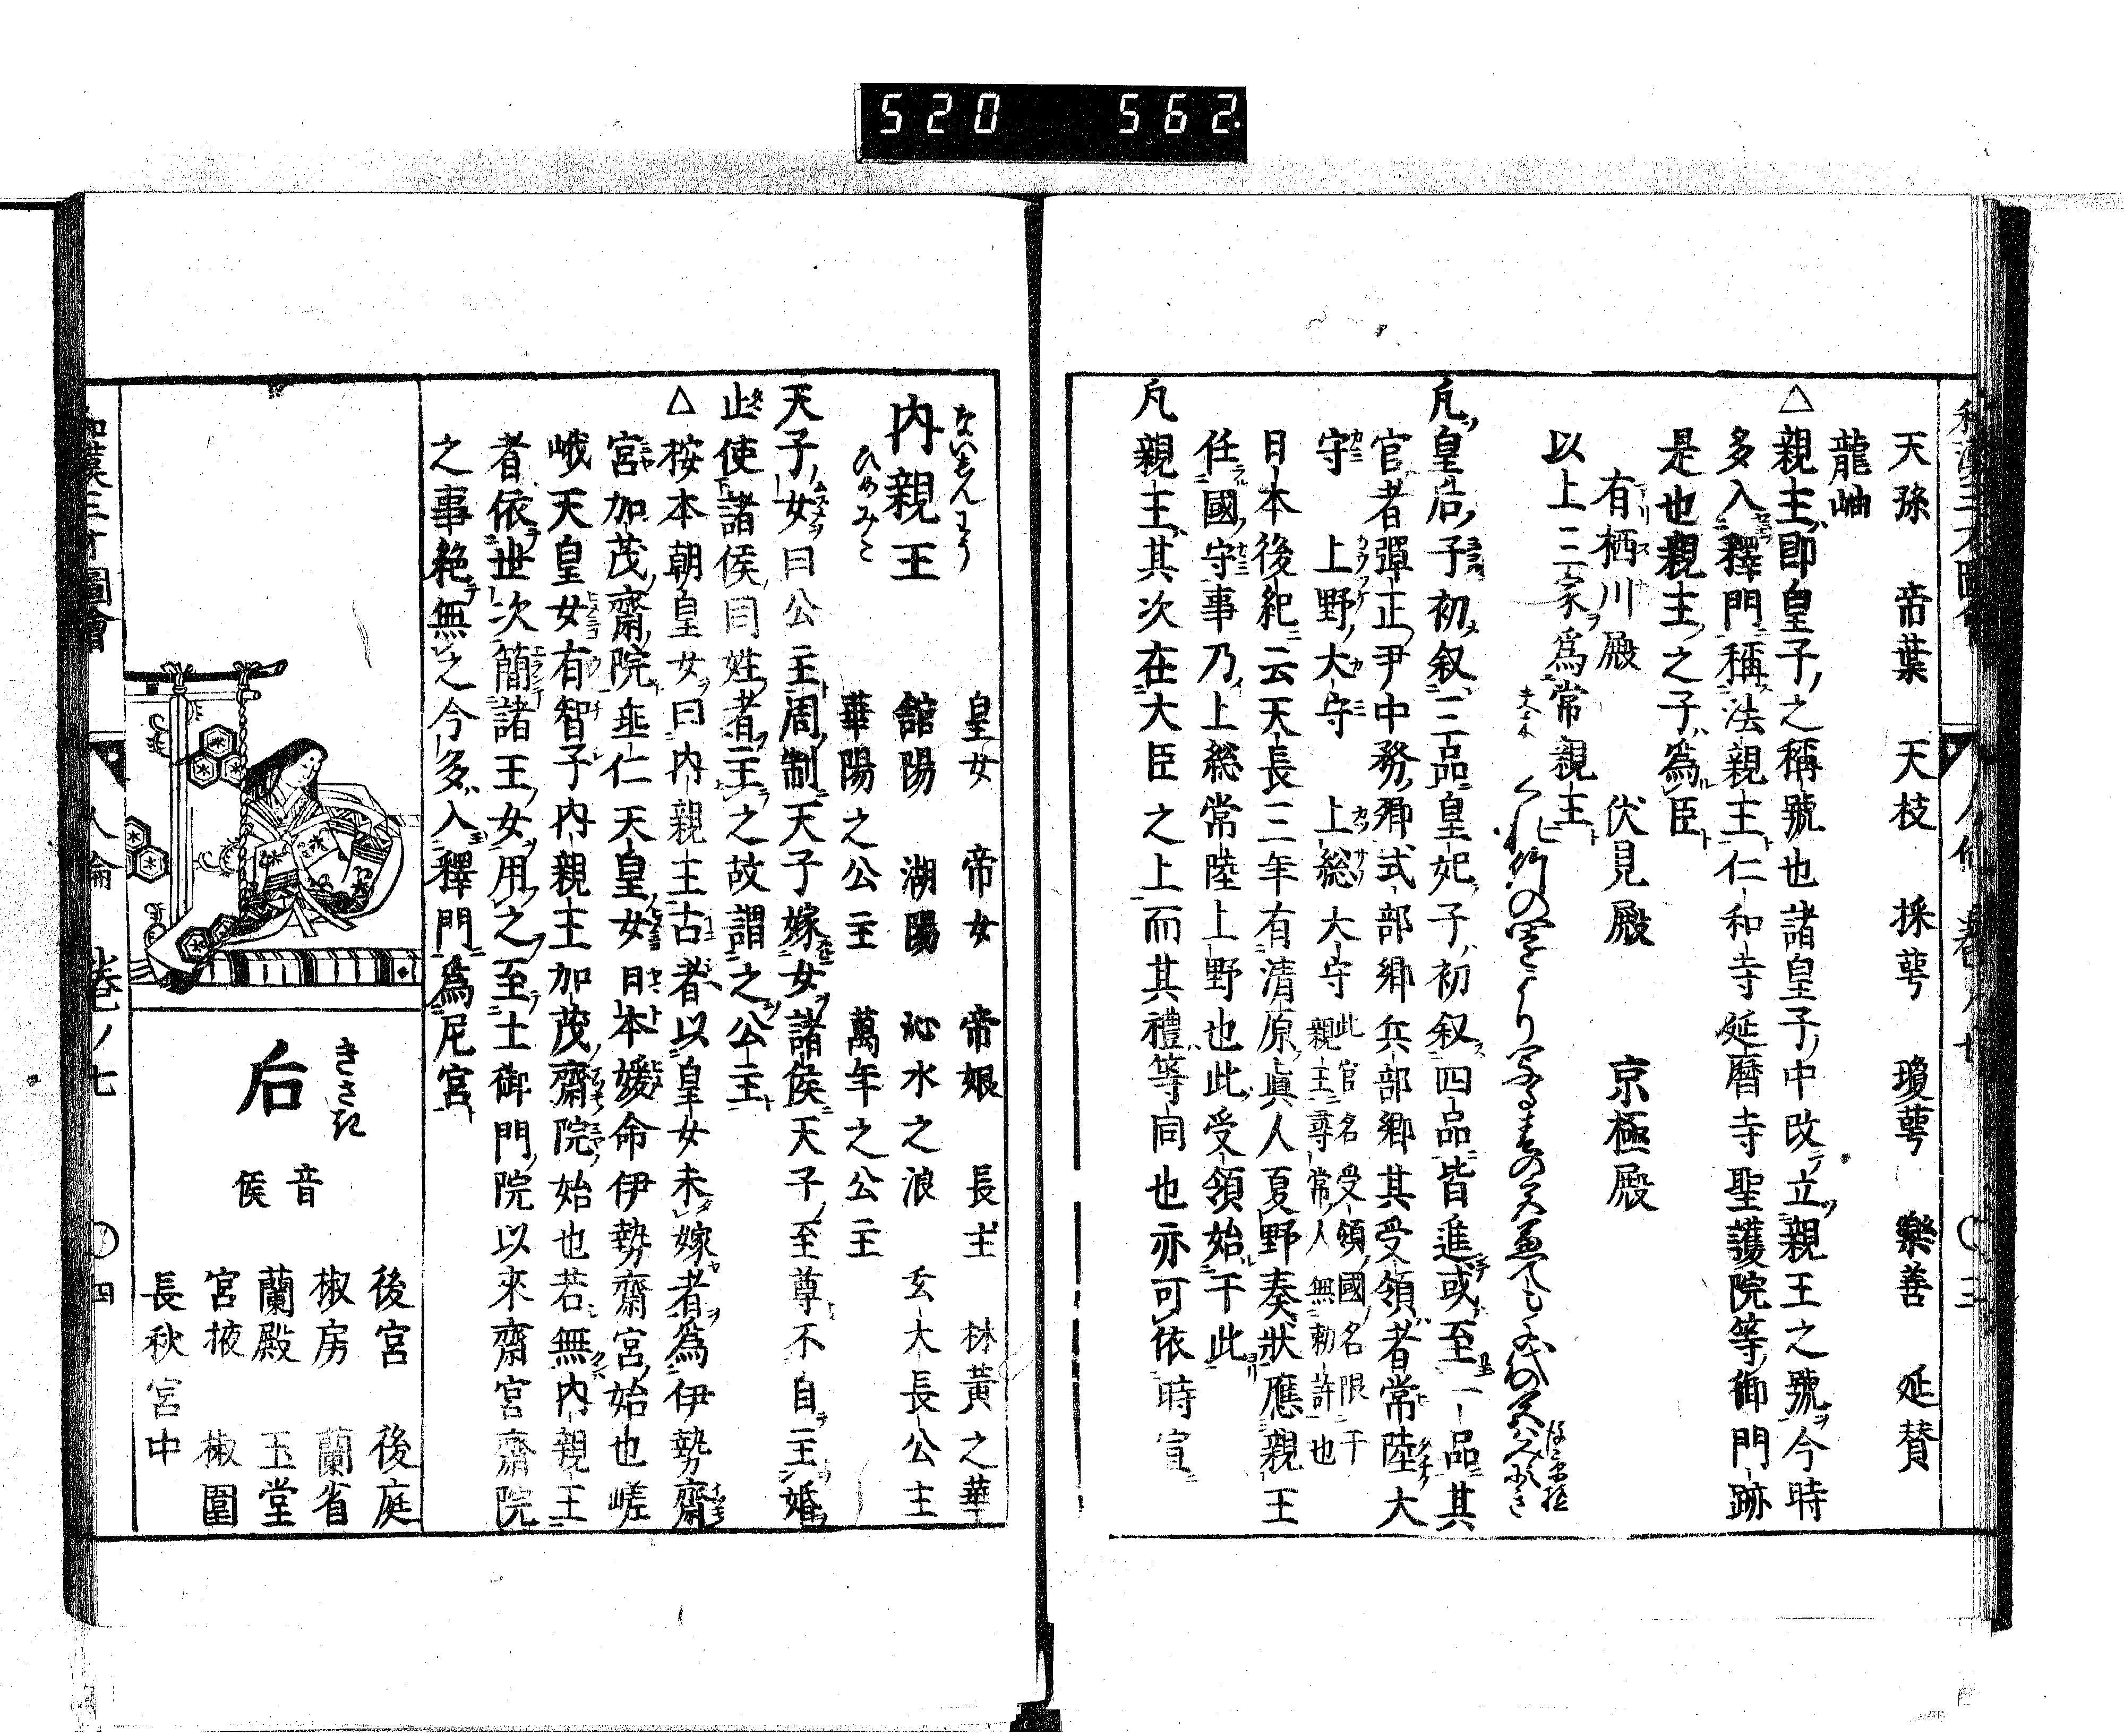 520 562
天孫 帝葉 天枝 採萼 瓊萼 樂善 延賛
龍岫
△親王即皇子之稱號也諸皇子中改立親王之號今時
多入釋門稱法親王仁和寺延暦寺聖護院等御門跡
是也親王之子為臣
有栖川殿 伏見殿 京極殿
以上三家為常親王
凡皇后子初叙三品皇妃子初叙四品皆進或至一品其
官者彈正尹中務卿式部卿兵部卿其受領者常陸大
守 上野大守 上総大守 此官名受領國名限于
親王尋常人無勅許也
日本後紀云天長三年有清原眞人夏野奏狀應親王
任國守事乃上総常陸上野也此受領始于此
凡親王其次在大臣之上而其禮等同也亦可依時宣
内親王
ないしんわう
ひめみこ
皇女 帝女 帝娘 長主 林黃之華
舘陽 湖陽 沁水之浪 玄大長公主
華陽之公主 萬年之公主
天子女曰公主周制天子嫁女諸侯天子至尊不自主婚
止使諸侯同姓者主之故謂之公主
△按本朝皇女曰内親王古者以皇女未嫁者為伊勢齋
宮加茂齋院垂仁天皇女日本媛命伊勢齋宮始也嵯
峨天皇女有智子内親王加茂齋院始也若無内親王
者依世次簡諸王女用之至土御門院以來齋宮齋院
之事絶無之今多入釋門為尼宮
后
きさき
音侯
後宮 後庭
椒房 蘭省
蘭殿 玉堂
宮掖 椒圍
長秋宮中
和漢三才圖會 人倫 巻ノ七 四